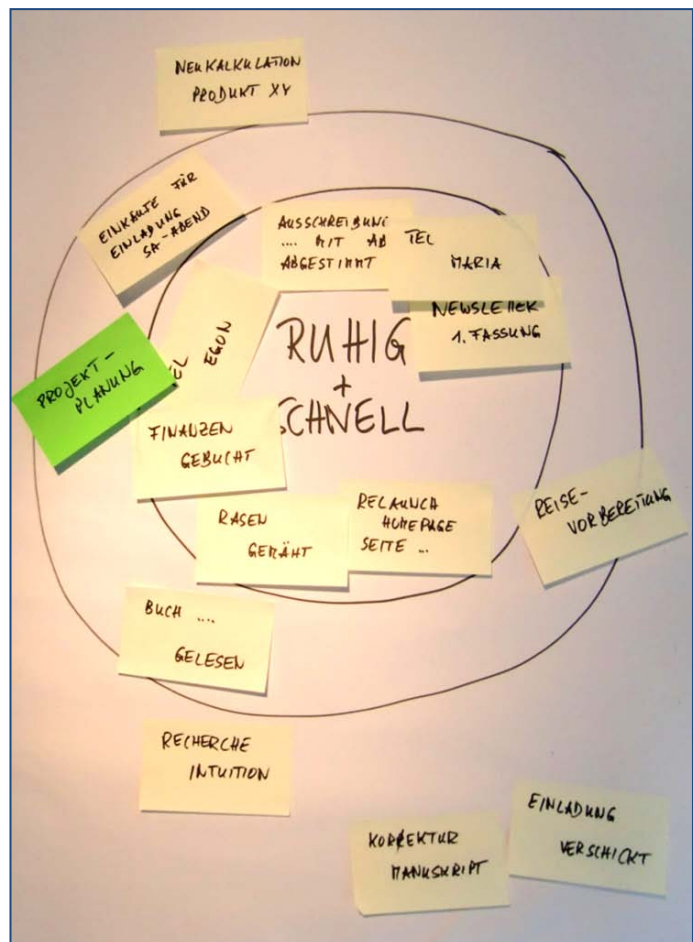 NEUKALKULATION
PRODUKT XY
EINKÄUFE FÜR
EINLADUNG
SA-ABEND
AUSSCHREIBUNG
.... MIT AB
ABGESTIMMT
TEL
MARIA
NEWSLETTER
1. FASSUNG
EL
EGON
PROJEKT-
PLANUNG
RUHIG
+
SCHNELL
FINANZEN
GEBUCHT
RASEN
GEMÄHT
RELAUNCH
HOMEPAGE
SEITE ...
REISE-
VORBEREITUNG
BUCH ....
GELESEN
RECHERCHE
INTUITION
KORREKTUR
MANUSKRIPT
EINLADUNG
VERSCHICKT